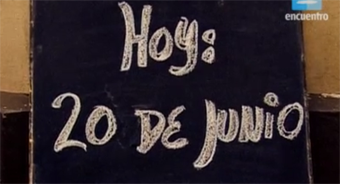 encuentro
Hoy:
20 DE JUNIO